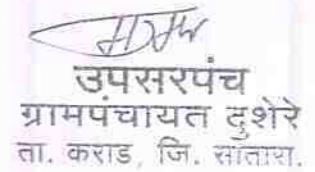 उपसरपंच
ग्रामपंचायत दुशेरे
ता. कराड, जि. सातारा.